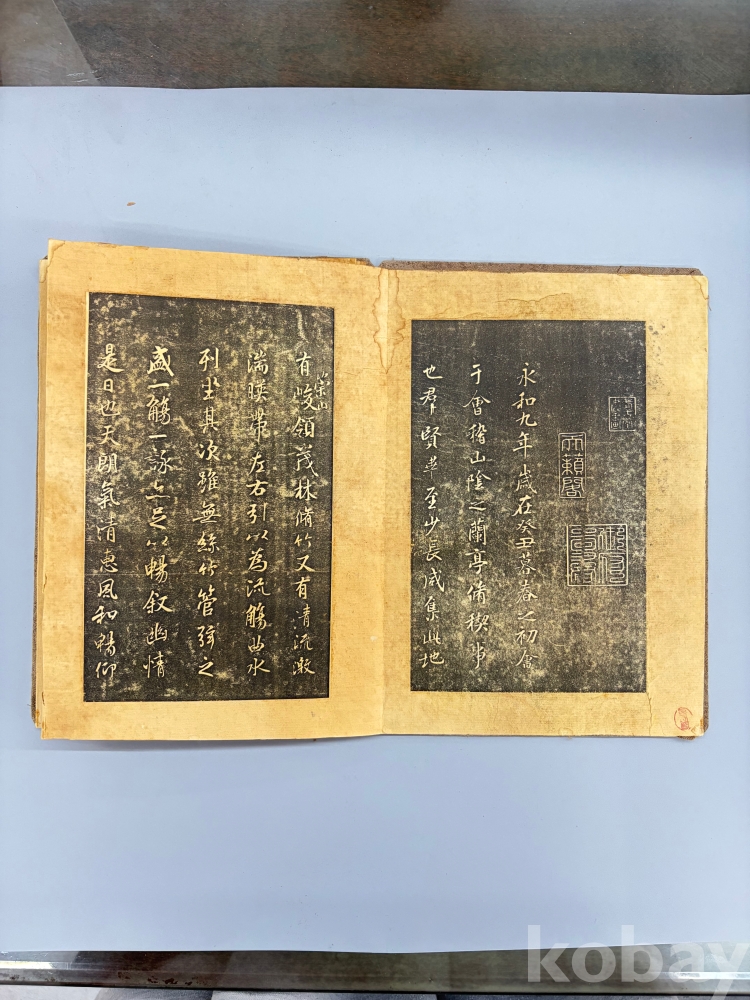 天籟閣
永和九年歲在癸丑暮春之初會
于會稽山陰之蘭亭脩禊事
也羣賢畢至少長咸集此地
崇山
有峻領茂林脩竹又有清流激
湍暎帶左右引以為流觴曲水
列坐其次雖無絲竹管弦之
盛一觴一詠亦足以暢敘幽情
是日也天朗氣清惠風和暢仰
kobay